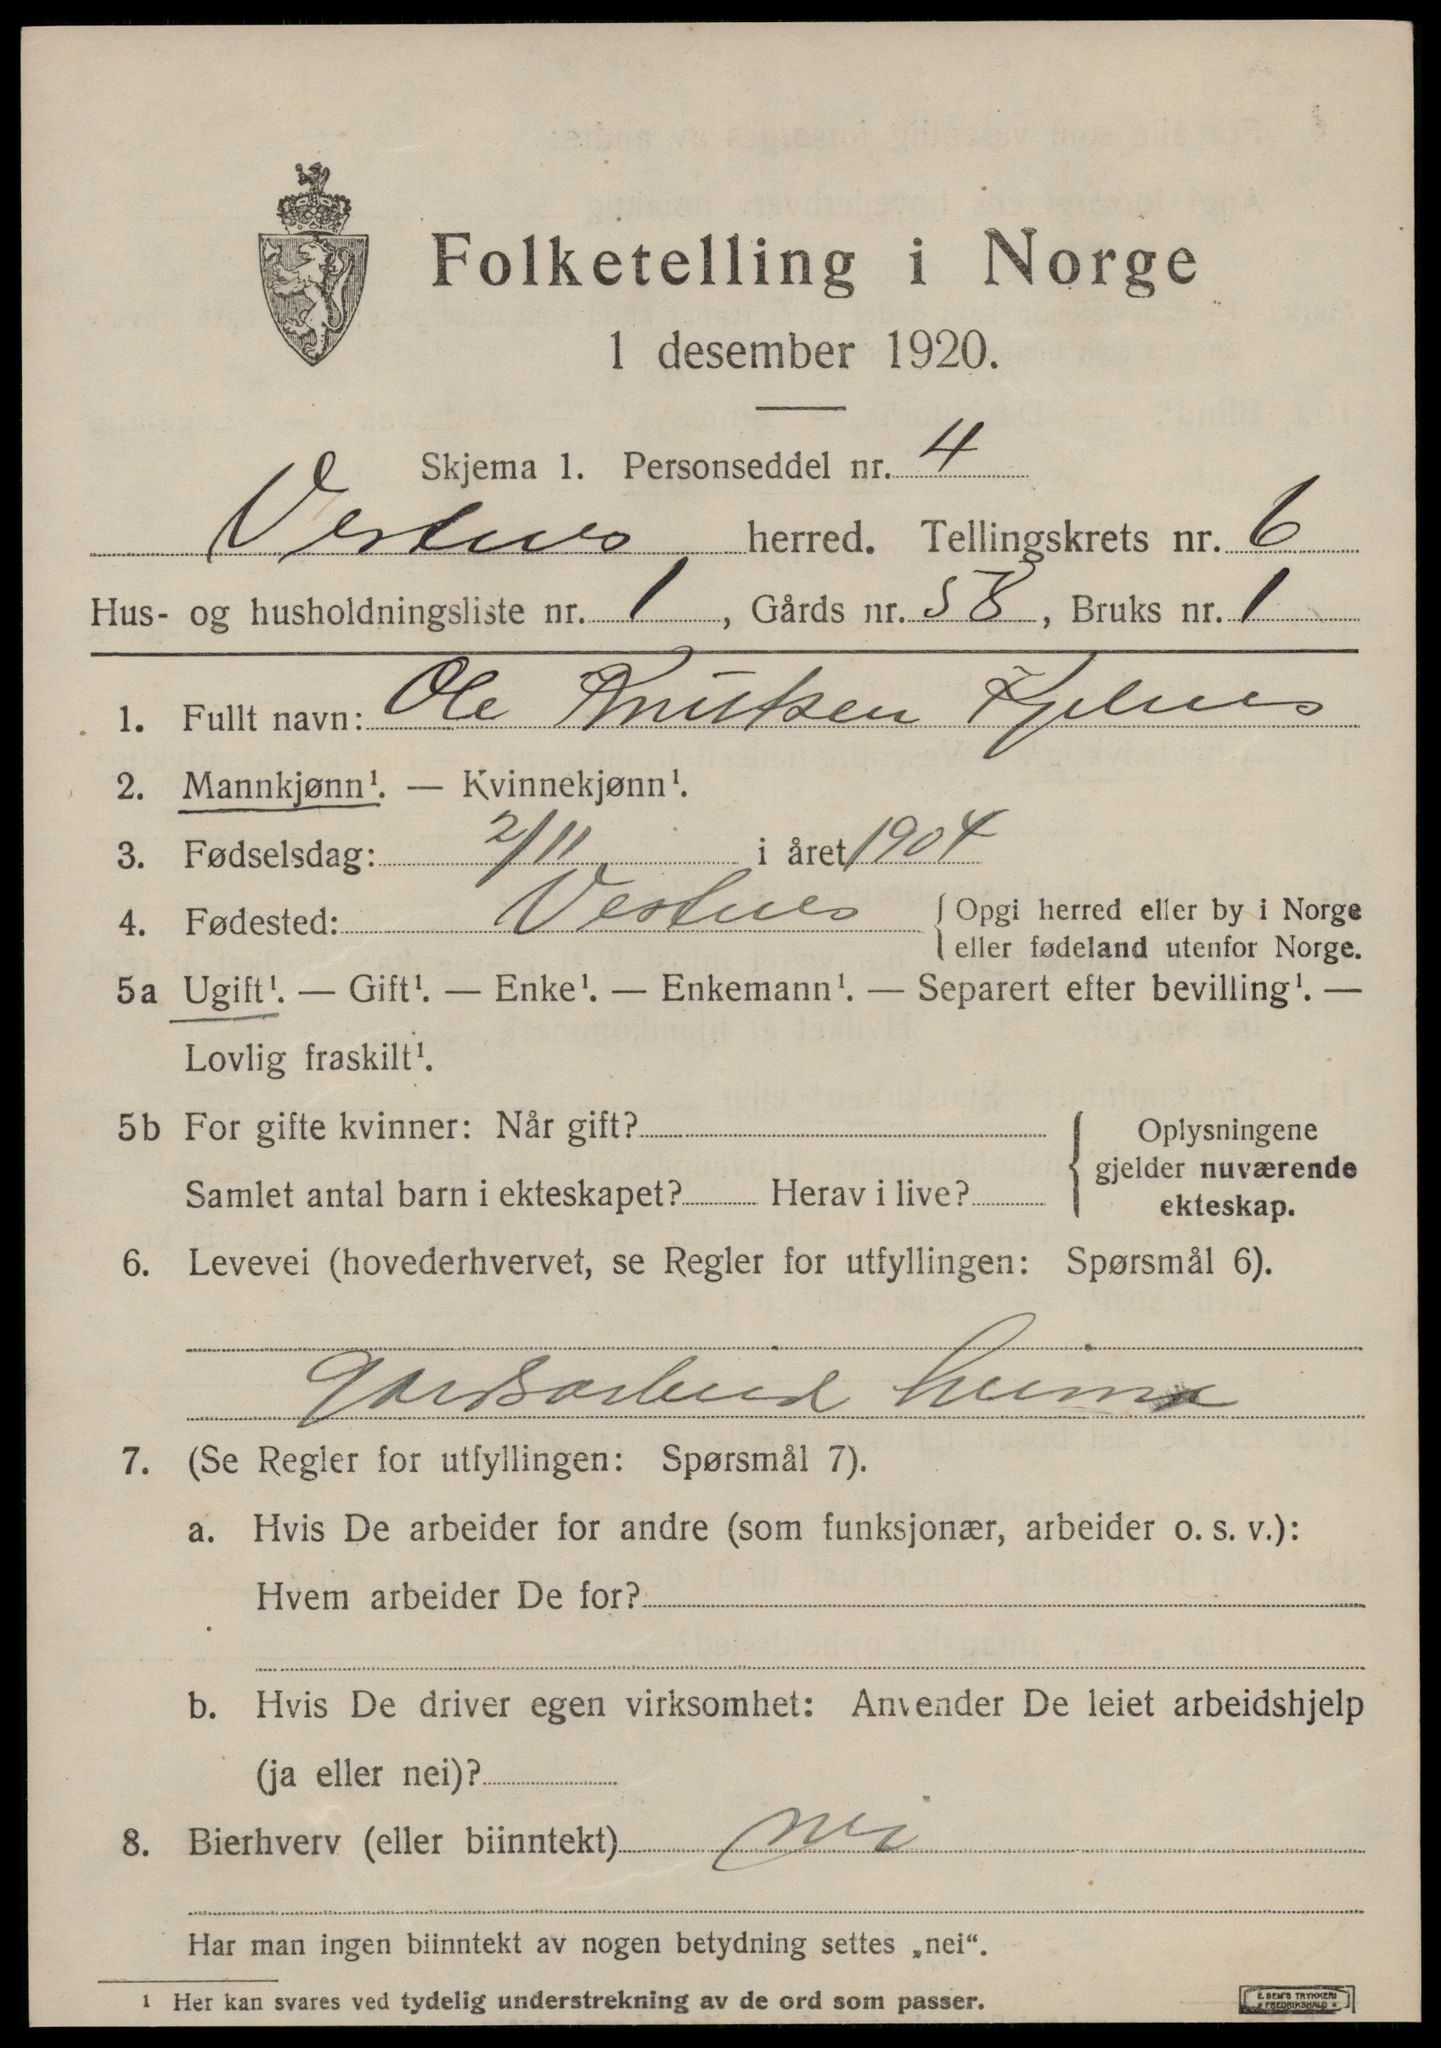 Folketelling i Norge
1 desember 1920.
Skjema 1. Personseddel nr. 4
Vestnes herred. Tellingskrets nr. 6
Hus- og husholdningsliste nr. 1, Gårds nr. 58, Bruks nr. 1
1. Fullt navn: Ole Knutsen Kjelnes
2. Mannkjønn¹. — Kvinnekjønn¹.
3. Fødselsdag: 2/11 i året 1904
4. Fødested: Vestnes { Opgi herred eller by i Norge
eller fødeland utenfor Norge.
5a Ugift¹. — Gift¹. — Enke¹. — Enkemann¹. — Separert efter bevilling¹. —
Lovlig fraskilt¹.
5b For gifte kvinner: Når gift?
Samlet antal barn i ekteskapet? Herav i live?
{ Oplysningene
gjelder nuværende
ekteskap.
6. Levevei (hovederhvervet, se Regler for utfyllingen: Spørsmål 6).
Gardsarbeid heime
7. (Se Regler for utfyllingen: Spørsmål 7).
a. Hvis De arbeider for andre (som funksjonær, arbeider o. s. v.):
Hvem arbeider De for?
b. Hvis De driver egen virksomhet: Anvender De leiet arbeidshjelp
(ja eller nei)?
8. Bierhverv (eller biinntekt) nei
Har man ingen biinntekt av nogen betydning settes „nei“.
¹ Her kan svares ved tydelig understrekning av de ord som passer.
E. SEM'S TRYKKERI
FREDRIKSHALD